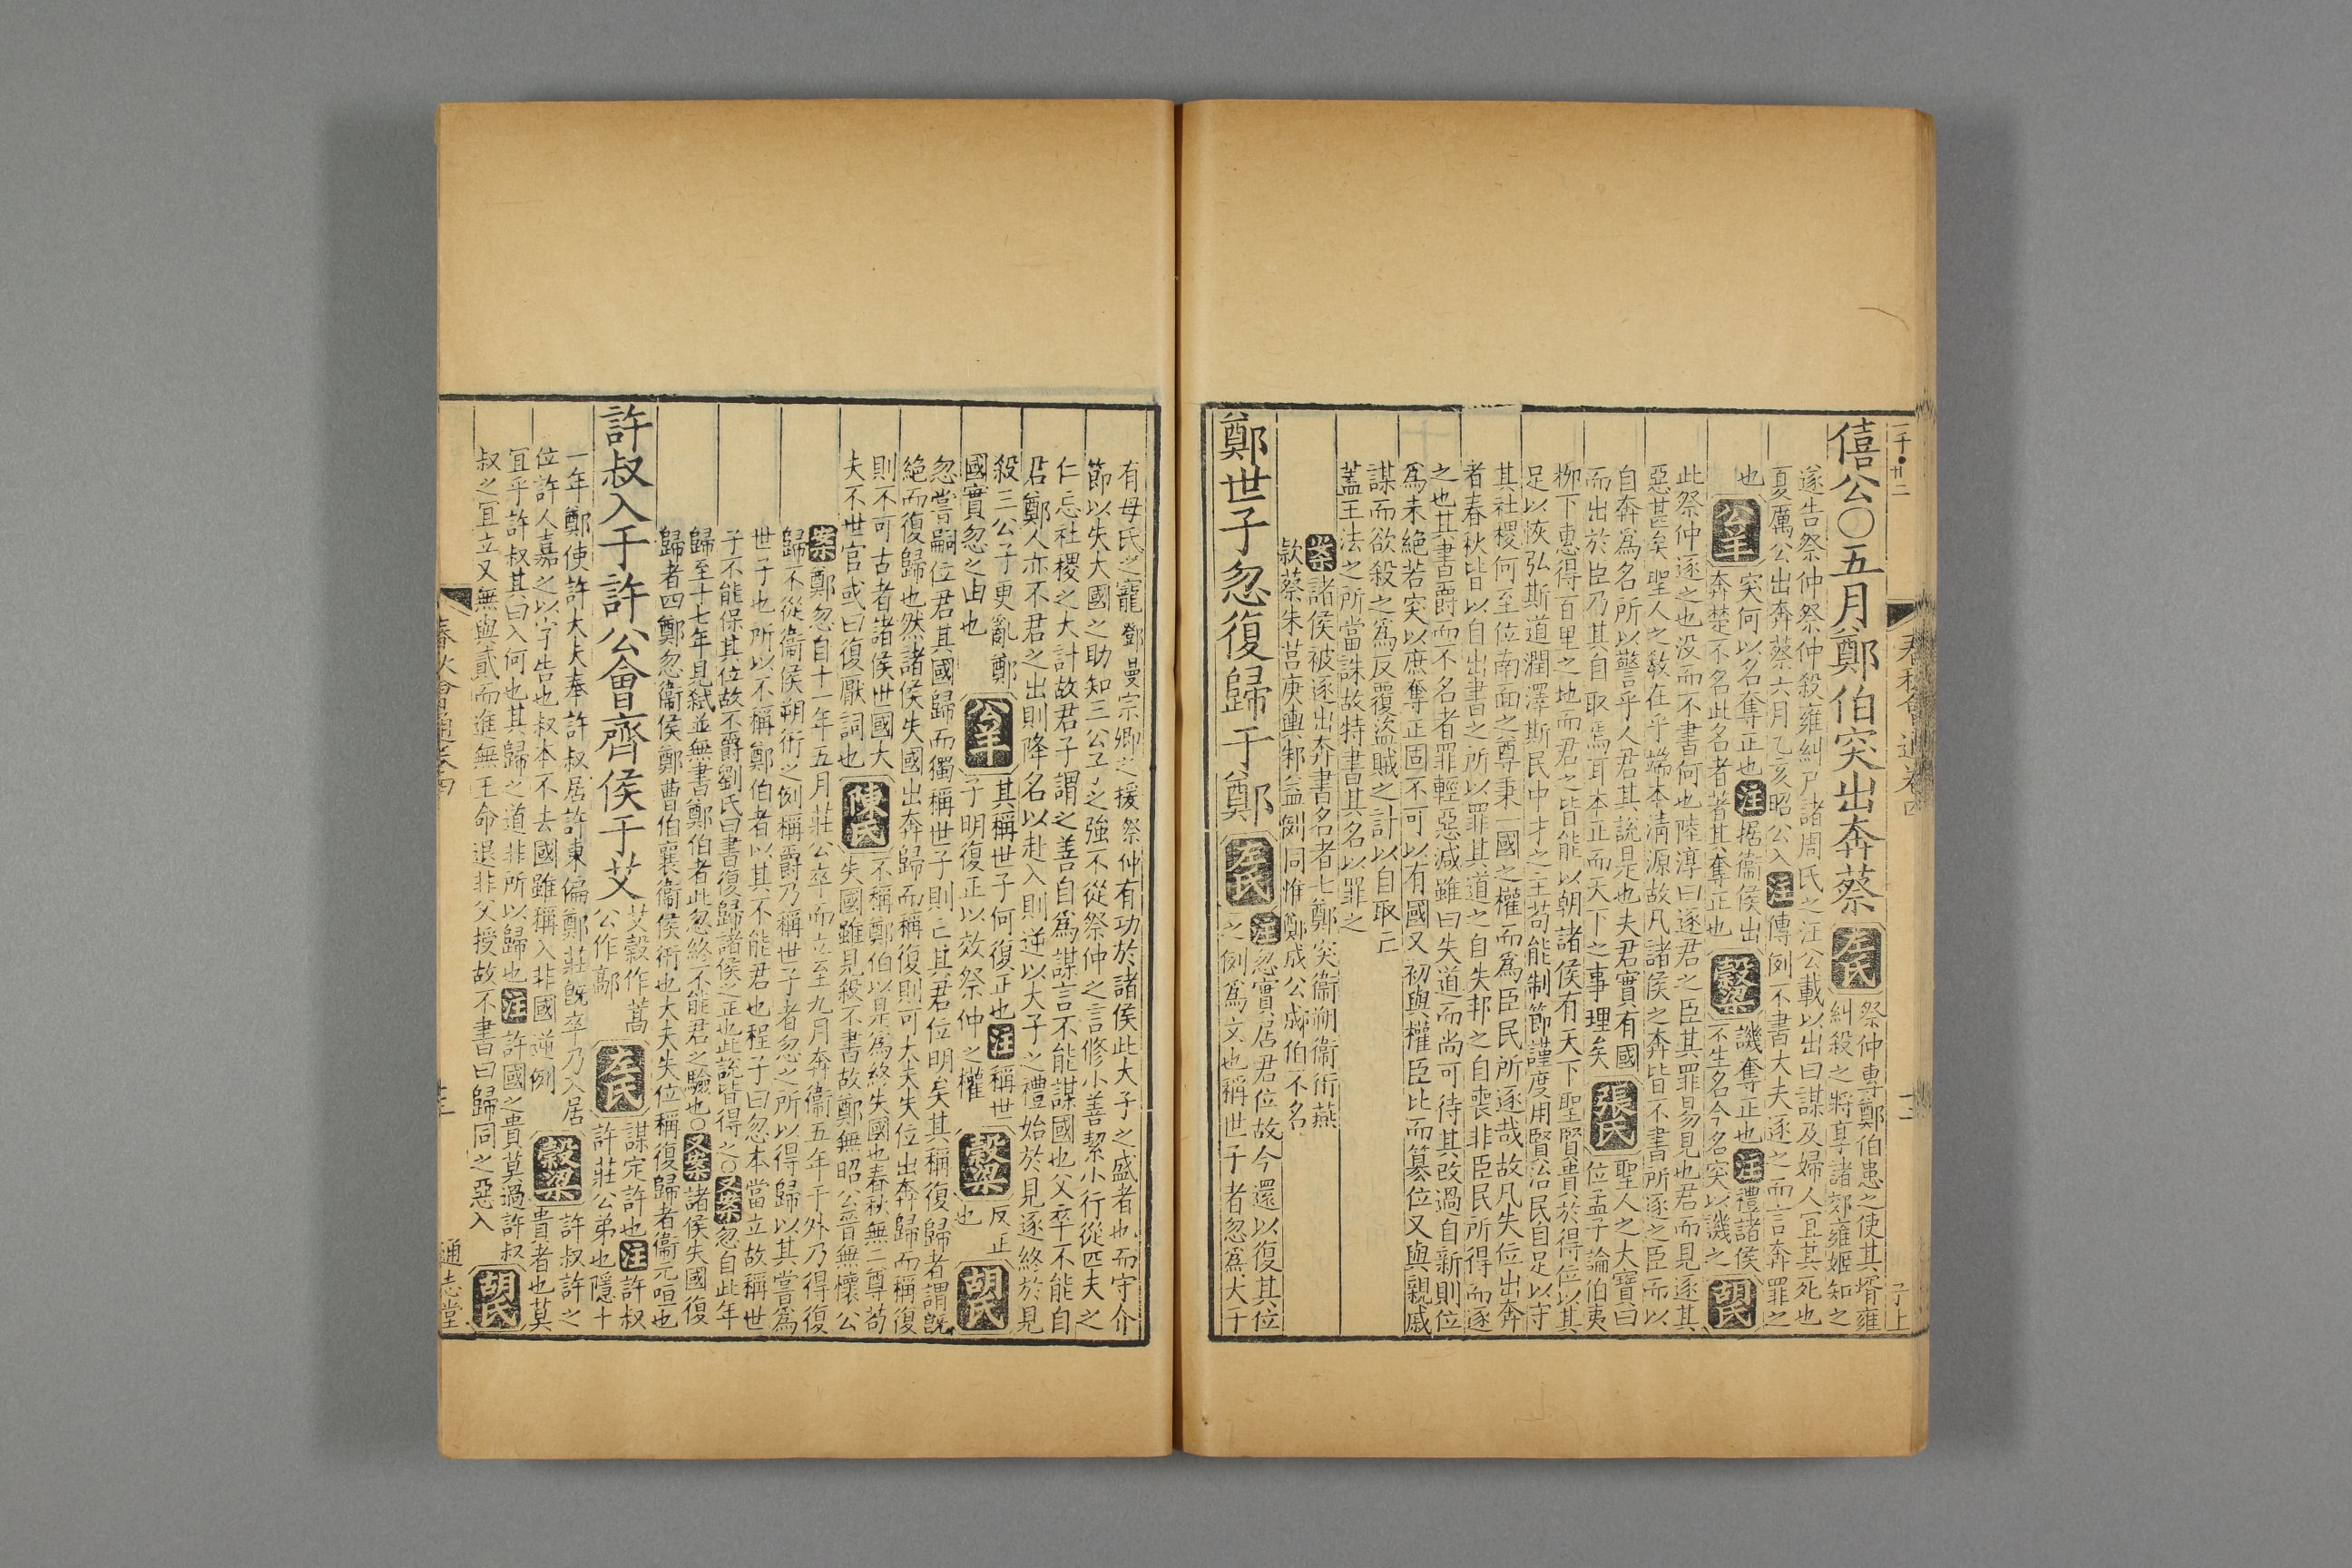 一千●廿二
春秋會通卷四
十二
子上
僖公〇五月鄭伯突出奔蔡
左氏
祭仲專鄭伯患之使其壻雍
糾殺之將享諸郊雍姬知之
遂告祭仲祭仲殺雍糾尸諸周氏之汪公載以出曰謀及婦人宜其死也
夏厲公出奔蔡六月乙亥昭公入注傳例不書大夫逐之而言奔罪之
也
公羊
突何以名奪正也注据衞侯出
奔楚不名此名者著其奪正也
穀梁
譏奪正也注禮諸侯
不生名今名突以譏之
胡氏
此祭仲逐之也没而不書何也陸淳曰逐君之臣其罪易見也君而見逐其
惡甚矣聖人之敎在乎端本淸源故凡諸侯之奔皆不書所逐之臣而以
自奔爲名所以警乎人君其說是也夫君實有國
而出於臣乃其自取焉耳本正而天下之事理矣
張氏
聖人之大寶曰
位孟子論伯夷
栁下惠得百里之地而君之皆能以朝諸侯有天下聖賢貴於得位以其
足以恢弘斯道潤澤斯民中才之主苟能制節謹度用賢治民自足以守
其社稷何至位南面之尊秉一國之權而爲臣民所逐哉故凡失位出奔
者春秋皆以自出書之所以罪其道之自失邦之自喪非臣民所得而逐
之也其書爵而不名者罪輕惡減雖曰失道而尚可待其改過自新則位
爲未絕若突以庶奪正固不可以有國又初與權臣比而簒位又與親戚
謀而欲殺之爲反覆盜賊之計以自取亡
蓋王法之所當誅故特書其名以罪之
案諸侯被逐出奔書名者七鄭突衞朔衞衎燕
款蔡朱莒庚輿邾益例同惟鄭成公成伯不名
鄭世子忽復歸于鄭
左氏
注忽實居君位故今還以復其位
之例爲文也稱世子者忽爲大子
有母氏之寵鄧曼宗卿之援祭仲有功於諸侯此大子之盛者也而守介
節以失大國之助知三公子之強不從祭仲之言修小善絜小行從匹夫之
仁忘社稷之大計故君子謂之善自爲謀言不能謀國也父卒不能自
居鄭人亦不君之出則降名以赴入則逆以大子之禮始於見逐終於見
殺三公子更亂鄭
國實忽之由也
公羊
其稱世子何復正也注稱世
子明復正以效祭仲之權
穀梁
反正
也
胡氏
忽嘗嗣位君其國歸而獨稱世子則亡其君位明矣其稱復歸者謂旣
絕而復歸也然諸侯失國出奔歸而稱復則可大夫失位出奔歸而稱復
則不可古者諸侯世國大
夫不世官或曰復厭詞也
陳氏
不稱鄭伯以是爲終失國也春秋無二尊苟
失國雖見殺不書故鄭無昭公晉無懷公
案鄭忽自十一年五月莊公卒而立至九月奔衞五年于外乃得復
歸不從衞侯朔衎之例稱爵乃稱世子者忽之所以得歸以其嘗爲
世子也所以不稱鄭伯者以其不能君也程子曰忽本當立故稱世
子不能保其位故不爵劉氏曰書復歸諸侯之正也此說皆得之〇又案忽自此年
歸至十七年見弒並無書鄭伯者此忽終不能君之驗也〇又案諸侯失國復
歸者四鄭忽衞侯鄭曹伯襄衞侯衎也大夫失位稱復歸者衞元咺也
許叔入于許公會齊侯于艾
艾穀作蒿
公作鄗
左氏
謀定許也注許叔
許莊公弟也隱十
一年鄭使許大夫奉許叔居許東偏鄭莊旣卒乃入居
位許人嘉之以字告也叔本不去國雖稱入非國逆例
穀梁
許叔許之
貴者也莫
宜乎許叔其曰入何也其歸之道非所以歸也注許國之貴莫過許叔
叔之宜立又無與貳而進無王命退非父授故不書曰歸同之惡入
胡氏
春秋會通卷四
通志堂